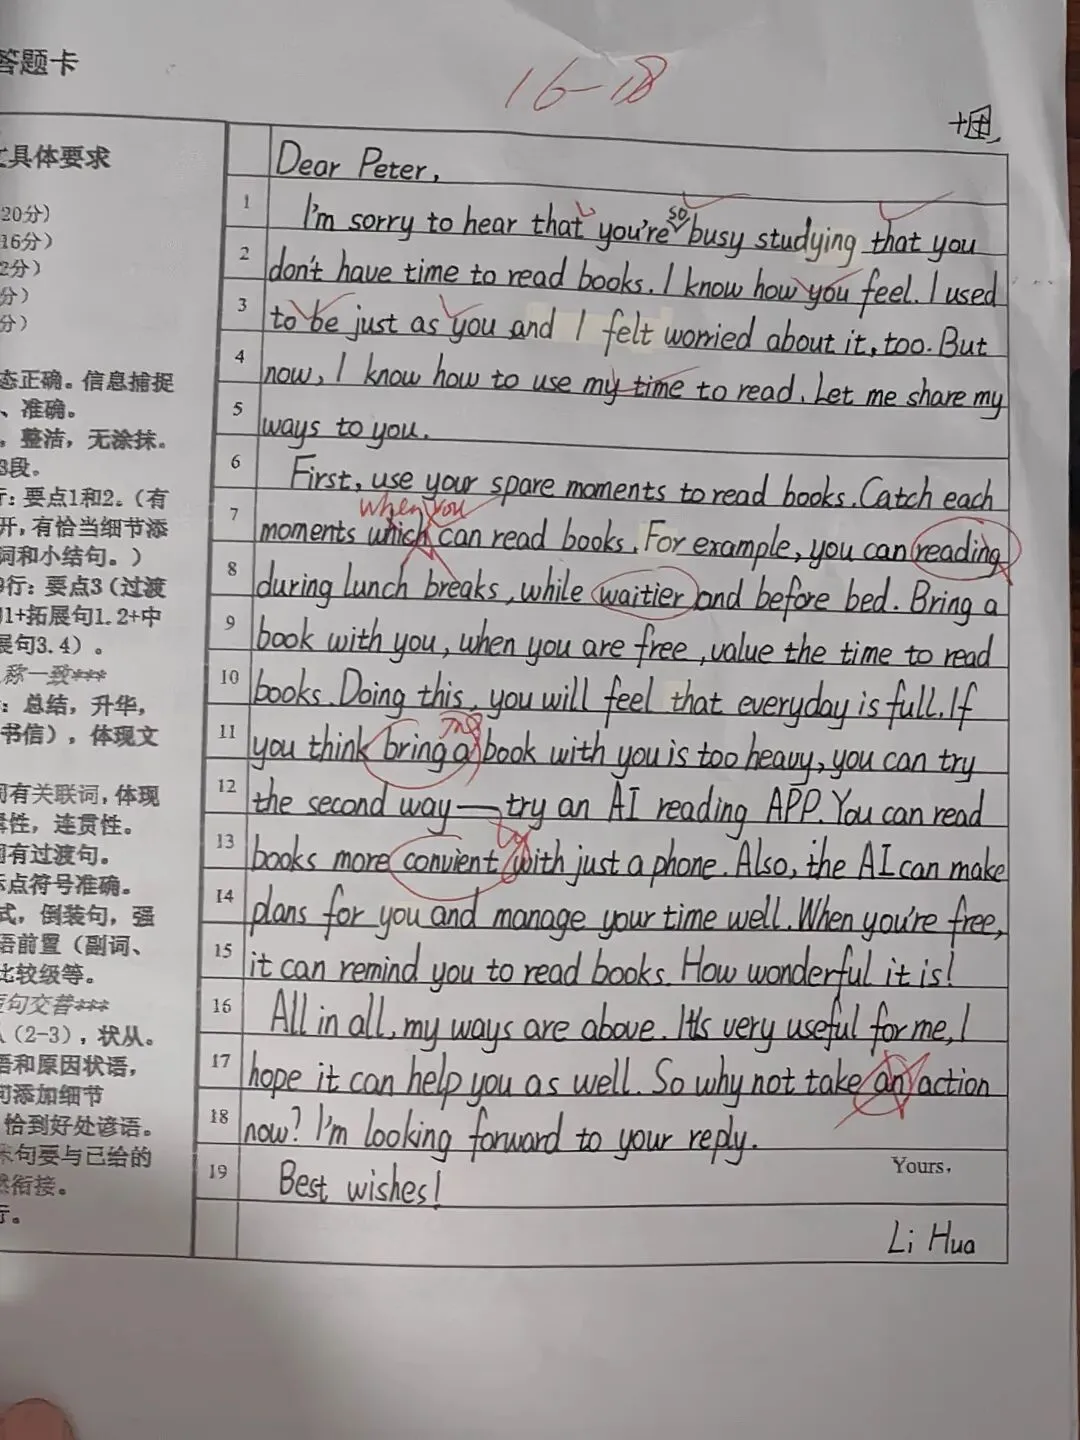 答题卡
16-18
具体要求
20分）
16分）
2分）
分）
分）
态正确。信息捕捉
、准确。
，整洁，无涂抹。
3段。
要点1和2。（有
开，有恰当细节添
词和小结句。）
9行：要点3（过渡
1+拓展句1.2+中
展句3.4）。
称一致***
：总结，升华，
书信），体现文
有关联词，体现
性，连贯性。
有过渡句。
点符号准确。
式，倒装句，强
语前置（副词、
比较级等。
句交替***
（2-3），状从。
语和原因状语，
可添加细节
恰到好处谚语。
末句要与已给的
然衔接。
行。
Dear Peter,
1 I'm sorry to hear that you're so busy studying that you
2 don't have time to read books. I know how you feel. I used
3 to be just as you and I felt worried about it, too. But
4 now, I know how to use my time to read. Let me share my
5 ways to you.
6 First, use your spare moments to read books. Catch each
when you
7 moments which can read books. For example, you can reading
8 during lunch breaks, while waitier and before bed. Bring a
9 book with you, when you are free, value the time to read
10 books. Doing this, you will feel that everyday is full. If
ing
11 you think bring a book with you is too heavy, you can try
12 the second way — try an AI reading APP. You can read
ly
13 books more convient with just a phone. Also, the AI can make
14 plans for you and manage your time well. When you're free,
15 it can remind you to read books. How wonderful it is!
16 All in all, my ways are above. It's very useful for me, I
17 hope it can help you as well. So why not take an action
18 now? I'm looking forward to your reply.
Yours,
19 Best wishes!
Li Hua